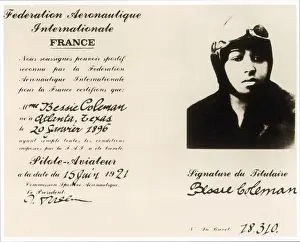 Federation Aeronautique
Internationale
FRANCE
Nous soussignes pouvoir sportif
reconnu par la Federation
Aeronautique Internationale
pour la France certifions que:
Mme Bessie Coleman
né à Atlanta, Texas
le 20 Janvier 1896
ayant rempli toutes les conditions
imposées par la F.A.I. a été breveté
Pilote-Aviateur
à la date du 15 Juin 1921
Commission Sportive Aéronautique
Le Président:
Signature du Titulaire
Bessie Coleman
No du Brevet 18.310.